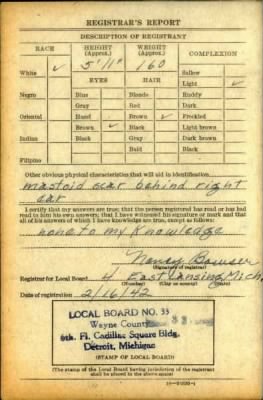 REGISTRAR'S REPORT
DESCRIPTION OF REGISTRANT
RACE HEIGHT (Approx.) WEIGHT (Approx.) COMPLEXION
5' 11" 160
White ✓ Sallow
EYES HAIR Light ✓
Negro Blue Blonde Ruddy
Gray Red Dark
Oriental Hazel Brown ✓ Freckled
Brown ✓ Black Light brown
Indian Black Gray Dark brown
Bald Black
Filipino
Other obvious physical characteristics that will aid in identification
mastoid scar behind right
ear
I certify that my answers are true; that the person registered has read or has had
read to him his own answers; that I have witnessed his signature or mark and that
all of his answers of which I have knowledge are true, except as follows:
none to my Knowledge
Nancy Bowser
(Signature of registrar)
Registrar for Local Board 4 East Lansing Mich.
(Number) (City or county) (State)
Date of registration 2/16/42
LOCAL BOARD NO. 33
Wayne County 33
6th. Fl. Cadillac Square Bldg.
Detroit, Michigan
(STAMP OF LOCAL BOARD)
(The stamp of the Local Board having jurisdiction of the registrant
shall be placed in the above space.)